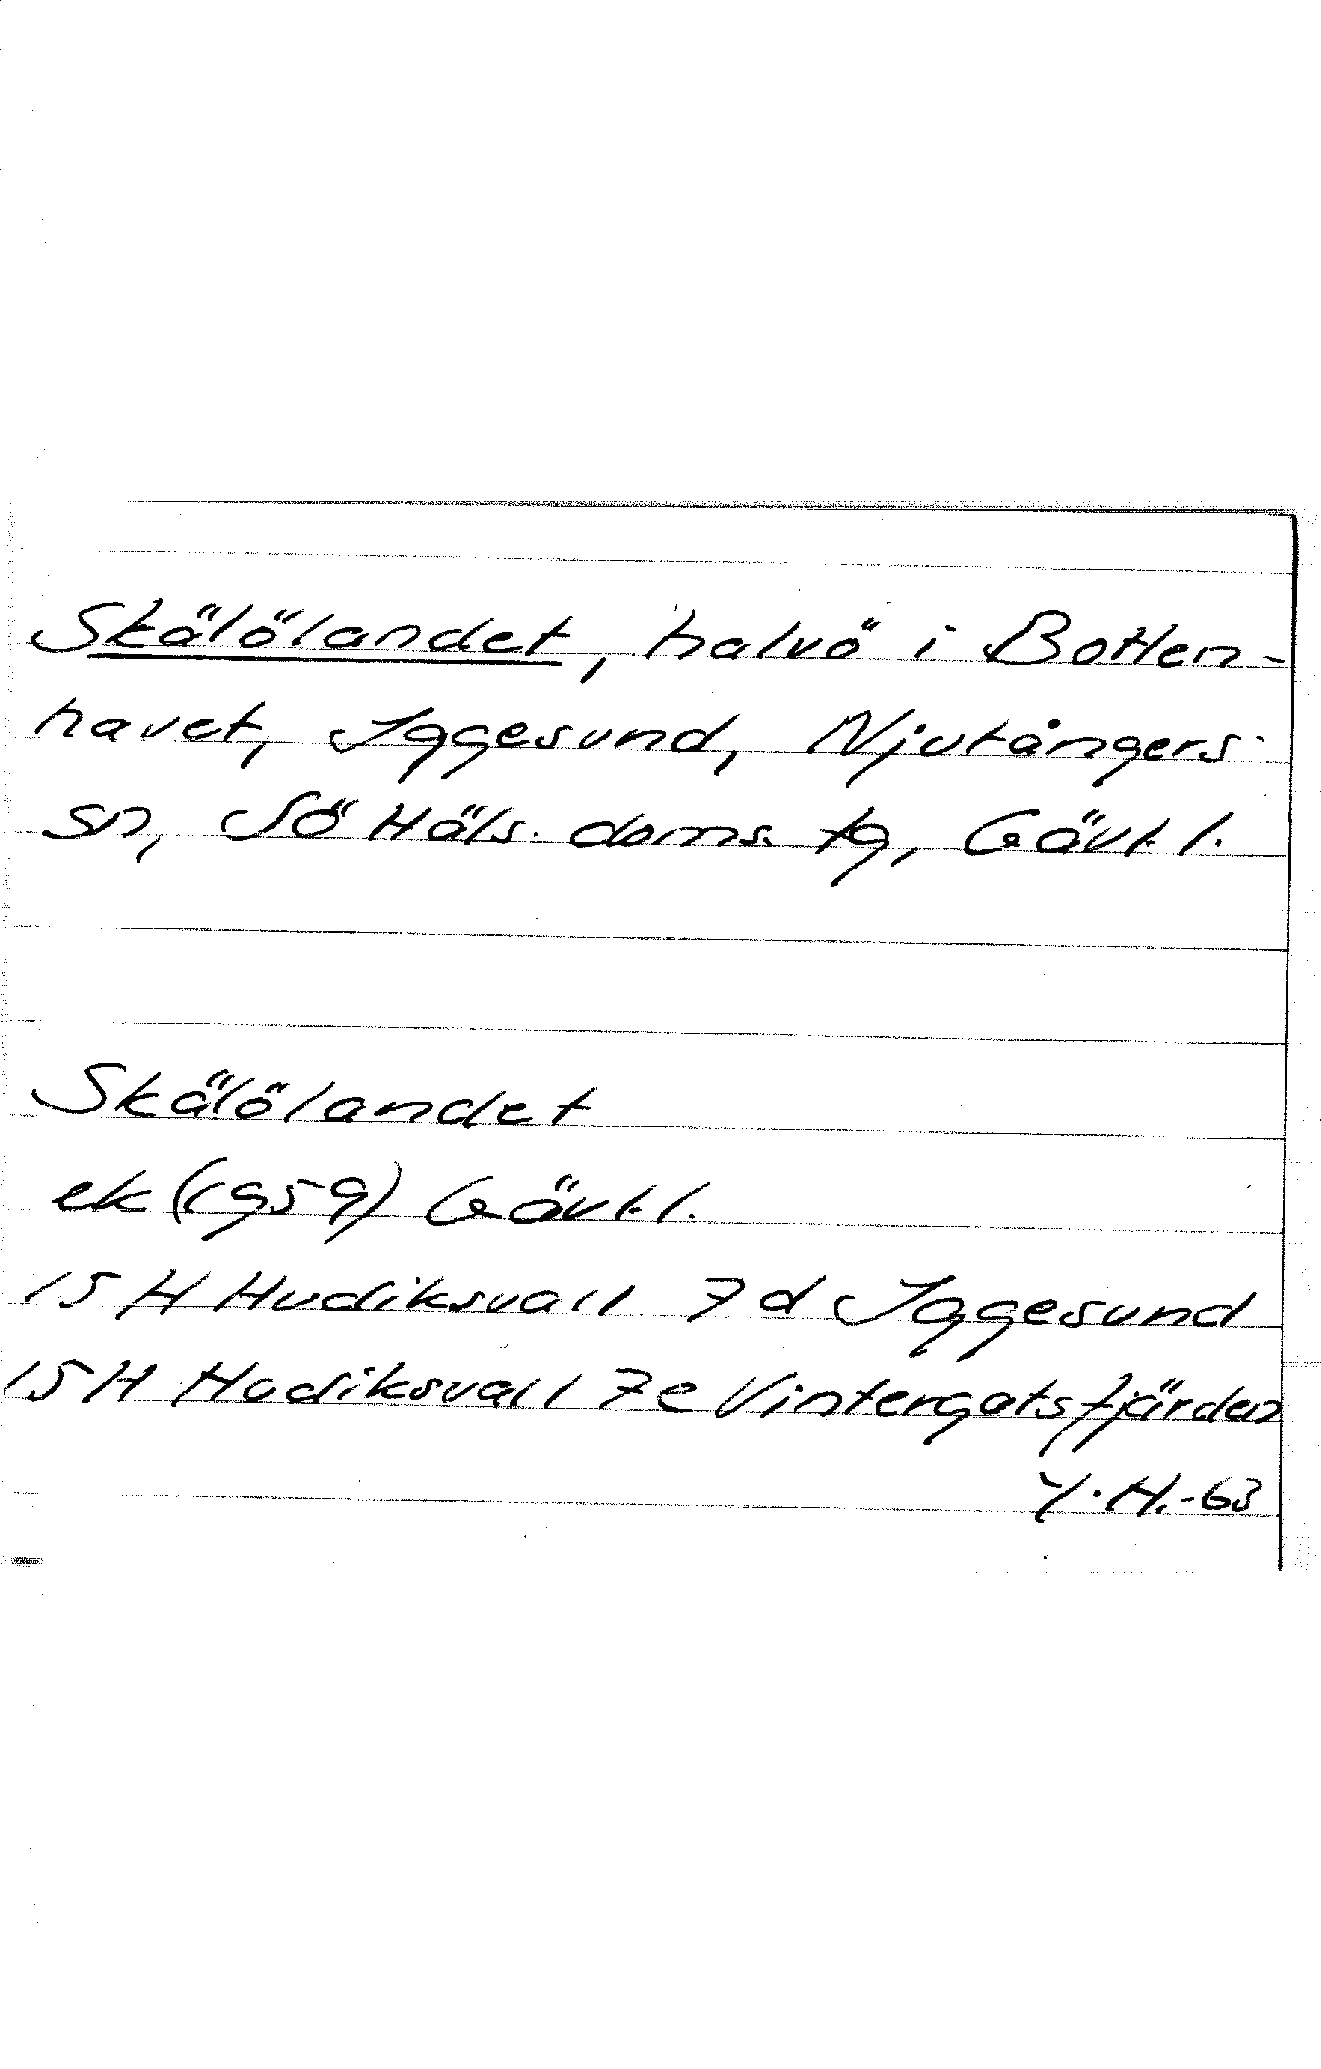 Skälölandet, halvö i Botten-
havet, Iggesund, Njutångers
sn, Sö Häls. doms. tg, Gävl. l.
Skälölandet
ek (1959) Gävl. l.
15 H Hudiksvall 7 d Iggesund
15 H Hudiksvall 7 e Vintergatsfjärden
Y. H. -63